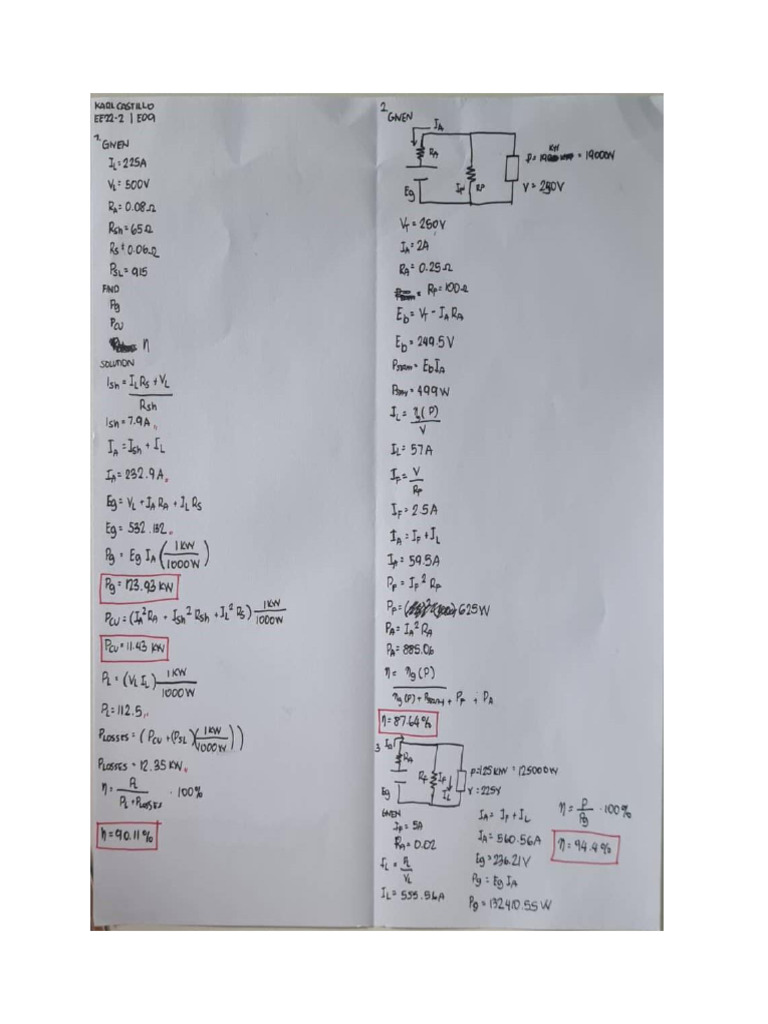 KARL CASTILLO
EE22-2 | E09
1.
GIVEN
IL = 225A
VL = 500V
RA = 0.08Ω
Rsh = 65Ω
Rs = 0.06Ω
PSL = 915
FIND
Pg
PCU
η
SOLUTION
Ish = ILRs + VL / Rsh
Ish = 7.9A
IA = Ish + IL
IA = 232.9A
Eg = VL + IARA + ILRs
Eg = 532.132
Pg = EgIA (1KW / 1000W)
Pg = 123.93 KW
PCU = (IA²RA + Ish²Rsh + IL²Rs) 1KW / 1000W
PCU = 11.43 KW
PL = (VLIL) 1KW / 1000W
PL = 112.5
PLOSSES = (PCU + (PSL)(1KW / 1000W))
PLOSSES = 12.35 KW
η = PL / PL + PLOSSES · 100%
η = 90.11%
2
GIVEN
IA
RA
Eg
IF
RF
= 19000W
V = 250V
VT = 250V
IA = 2A
RA = 0.25Ω
RF = 100Ω
Eb = VT - IARA
Eb = 249.5V
= EbIA
= 499W
IL = (P) / V
IL = 57A
IF = V / RF
IF = 2.5A
IA = IF + IL
IA = 59.5A
PF = IF²RF
PF = 625W
PA = IA²RA
PA = 885.06
η = ηg(P) / ηg(P) + + PF + PA
η = 87.64%
3
RA
Eg
RF
IF
IL
P = 125KW = 125000W
V = 225V
GIVEN
IF = 5A
RA = 0.02
IL = PL / VL
IL = 555.56A
IA = IF + IL
IA = 560.56A
Eg = 236.21V
Pg = EgIA
Pg = 132410.55W
η = P / Pg · 100%
η = 94.4%